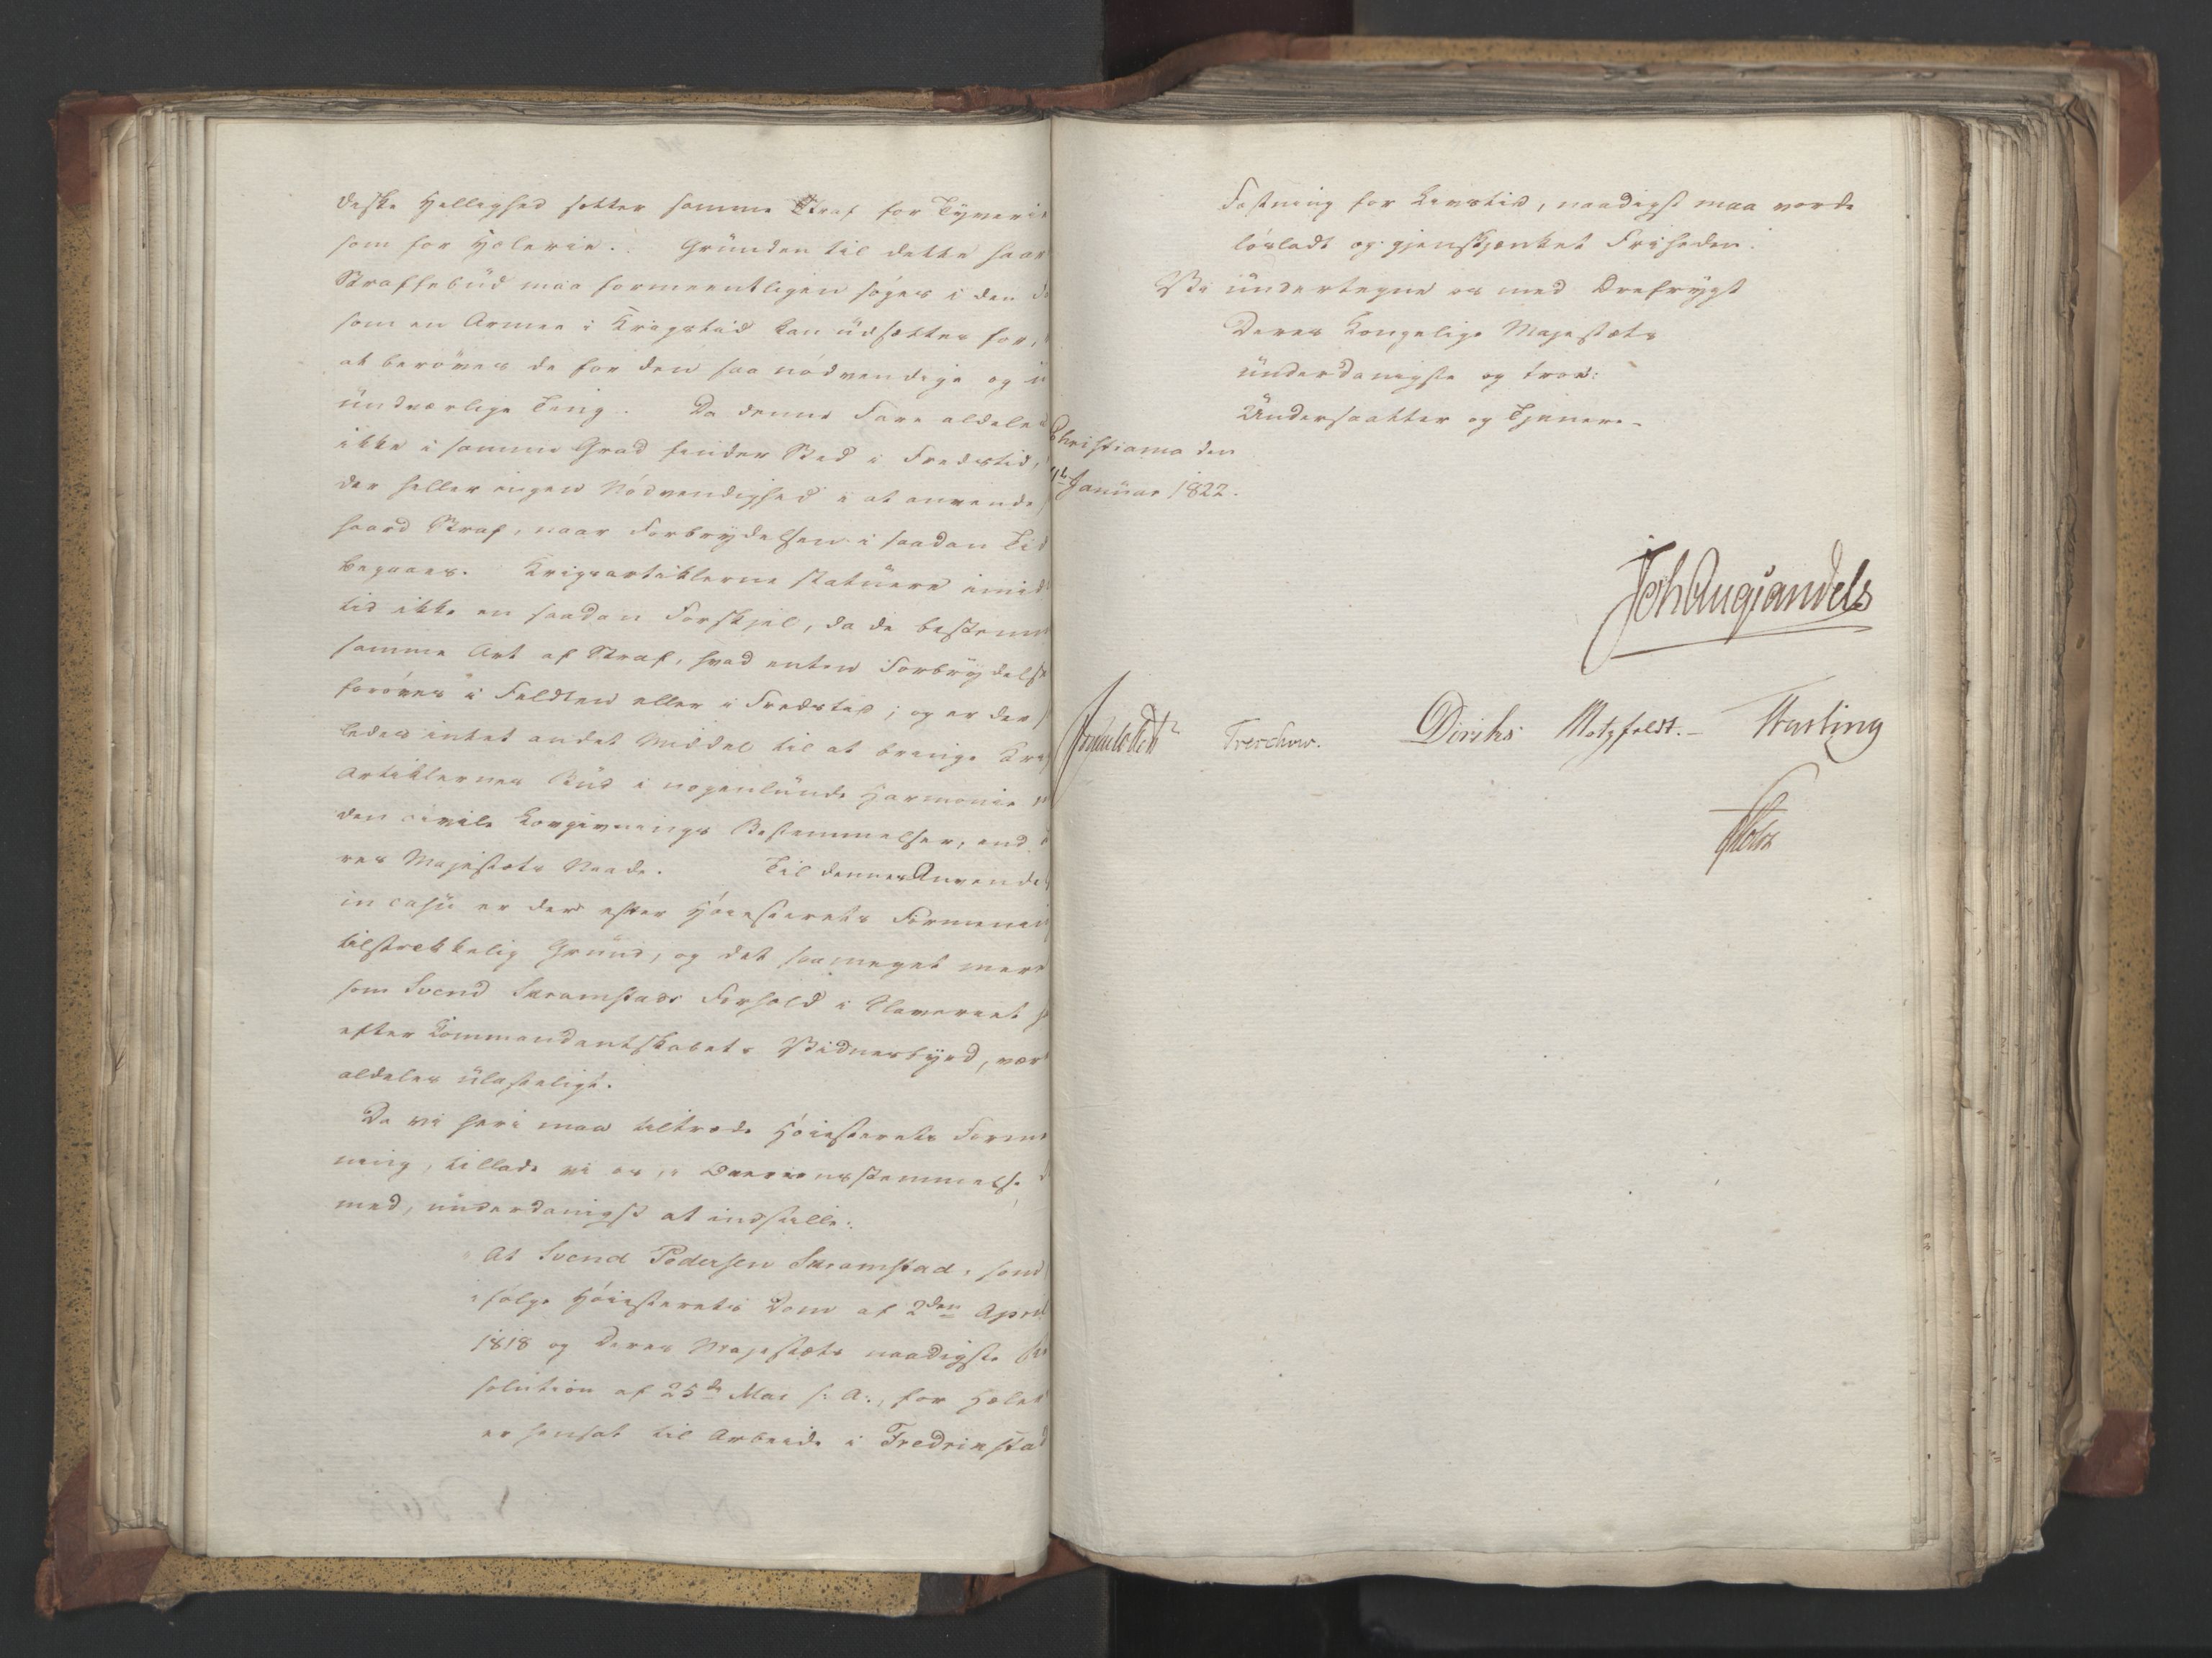 diske Hellighed sætter samme Straf for Tyverie
som for Hæleri. Grunden til dette haar
Straffebud maa formeentligen søges i den
som en Armee i Krigstid kan udsættes for,
at berøves de for den saa nødvendige og
undværlige Ting. Da denne Fare aldeles
ikke i samme Grad finder Sted i Fredstid,
der heller ingen Nødvendighed i at anvende
haard Straf, naar Forbrydelsen i saadan Tid
begaaes. Krigsartiklerne statuere imid
tid ikke en saadan Forskjel, da de bestemme
samme Art af Straf, hvad enten Forbrydelse
forøves i Feldten eller i Fredstid; og er der
ledes intet andet Middel til at bringe Krigs
Artiklernes Bud i nogenlunde Harmonie
den civile Lovgivnings Bestemmelser, end
res Majestæts Naade. Til dennes Anvendel
in casu er der efter Høiesterets Formening
tilstrekkelig Grund, og det saameget mere
som Svend Skramstads Forhold i Slaveriet
efter Kommandantskabets Vidnesbyrd, været
aldeles ulasteligt.
Da vi heri maa tiltræde Høiesterets Forme
ning, tillade vi os, i Overeensstemmelse
med, underdanigst at indstille:
At Svend Pedersen Skramstad, som
ifølge Høiesterets Dom af 2den April
1818 og Deres Majestæts naadigste Re
solution af 25de Mai s: A:, for Hæleri
er hensat til Arbeide i Fredrikstad
Fæstning for Livstid, naadigst maa vorde
løsladt og gjenskjænket Friheden.
Vi undertegne os med Ærefrygt
Deres Kongelige Majestæts
underdanigste og troe:
Undersaatter og Tjenere.
Christiania den
Januar 1822.
Joh Aug Sandels
Sommerfeldt Treschow. Diriks Motzfeldt. Fasting
Holst